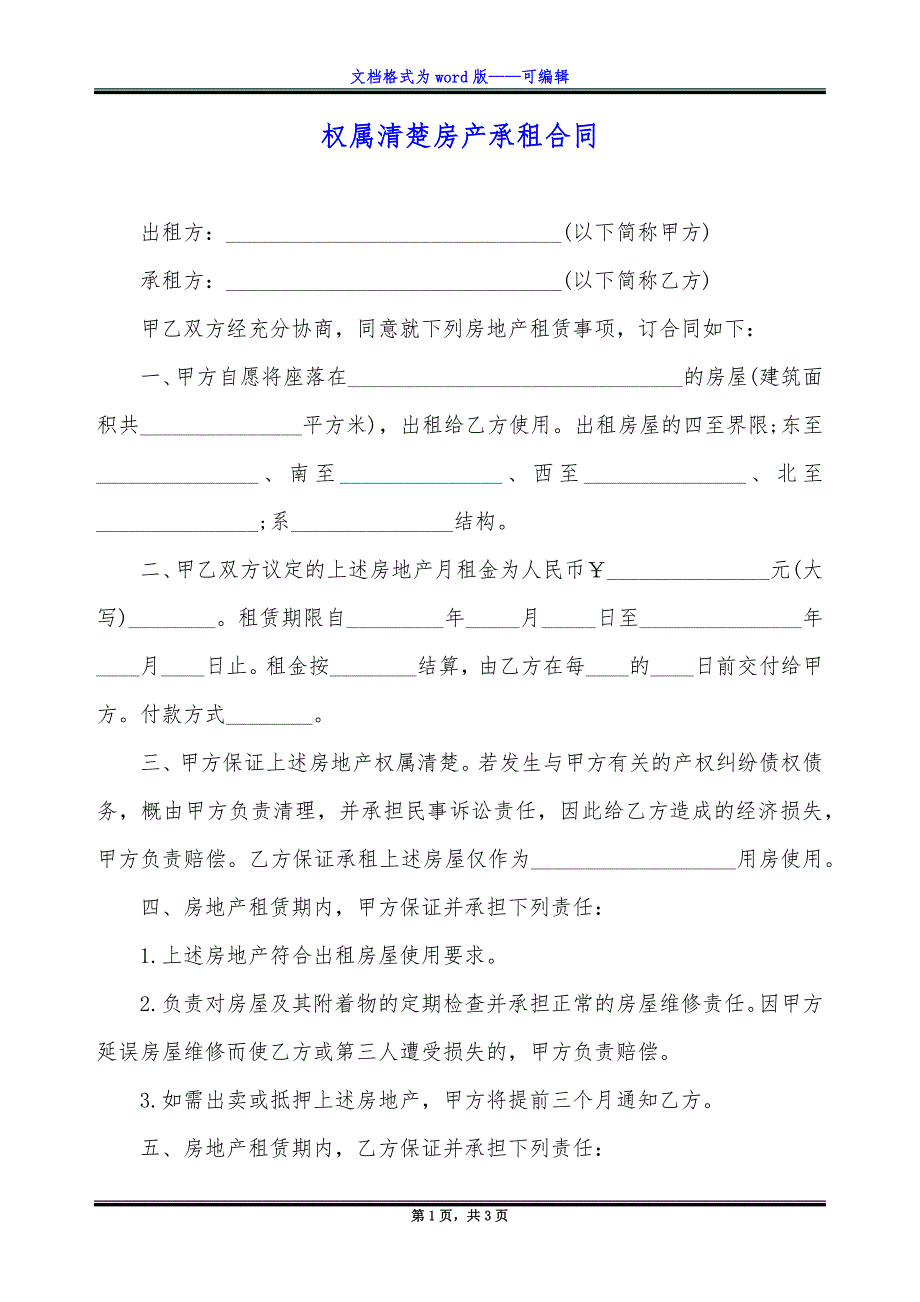 文档格式为 word 版——可编辑
权属清楚房产承租合同
出租方：_______________________________(以下简称甲方)
承租方：_______________________________(以下简称乙方)
甲乙双方经充分协商，同意就下列房地产租赁事项，订合同如下：
一、甲方自愿将座落在_______________________________的房屋(建筑面
积共_______________平方米)，出租给乙方使用。出租房屋的四至界限;东至
_______________、南至_______________、西至_______________、北至
_______________;系_______________结构。
二、甲乙双方议定的上述房地产月租金为人民币￥_______________元(大
写)________。租赁期限自_________年_____月_____日至_______________年
____月____日止。租金按________结算，由乙方在每____的____日前交付给甲
方。付款方式________。
三、甲方保证上述房地产权属清楚。若发生与甲方有关的产权纠纷债权债
务，概由甲方负责清理，并承担民事诉讼责任，因此给乙方造成的经济损失，
甲方负责赔偿。乙方保证承租上述房屋仅作为___________________用房使用。
四、房地产租赁期内，甲方保证并承担下列责任：
1.上述房地产符合出租房屋使用要求。
2.负责对房屋及其附着物的定期检查并承担正常的房屋维修责任。因甲方
延误房屋维修而使乙方或第三人遭受损失的，甲方负责赔偿。
3.如需出卖或抵押上述房地产，甲方将提前三个月通知乙方。
五、房地产租赁期内，乙方保证并承担下列责任：
第 1 页，共 3 页